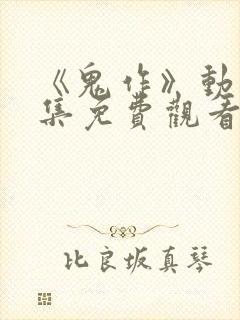 《鬼作》動
集免費觀看
比良坂真琴